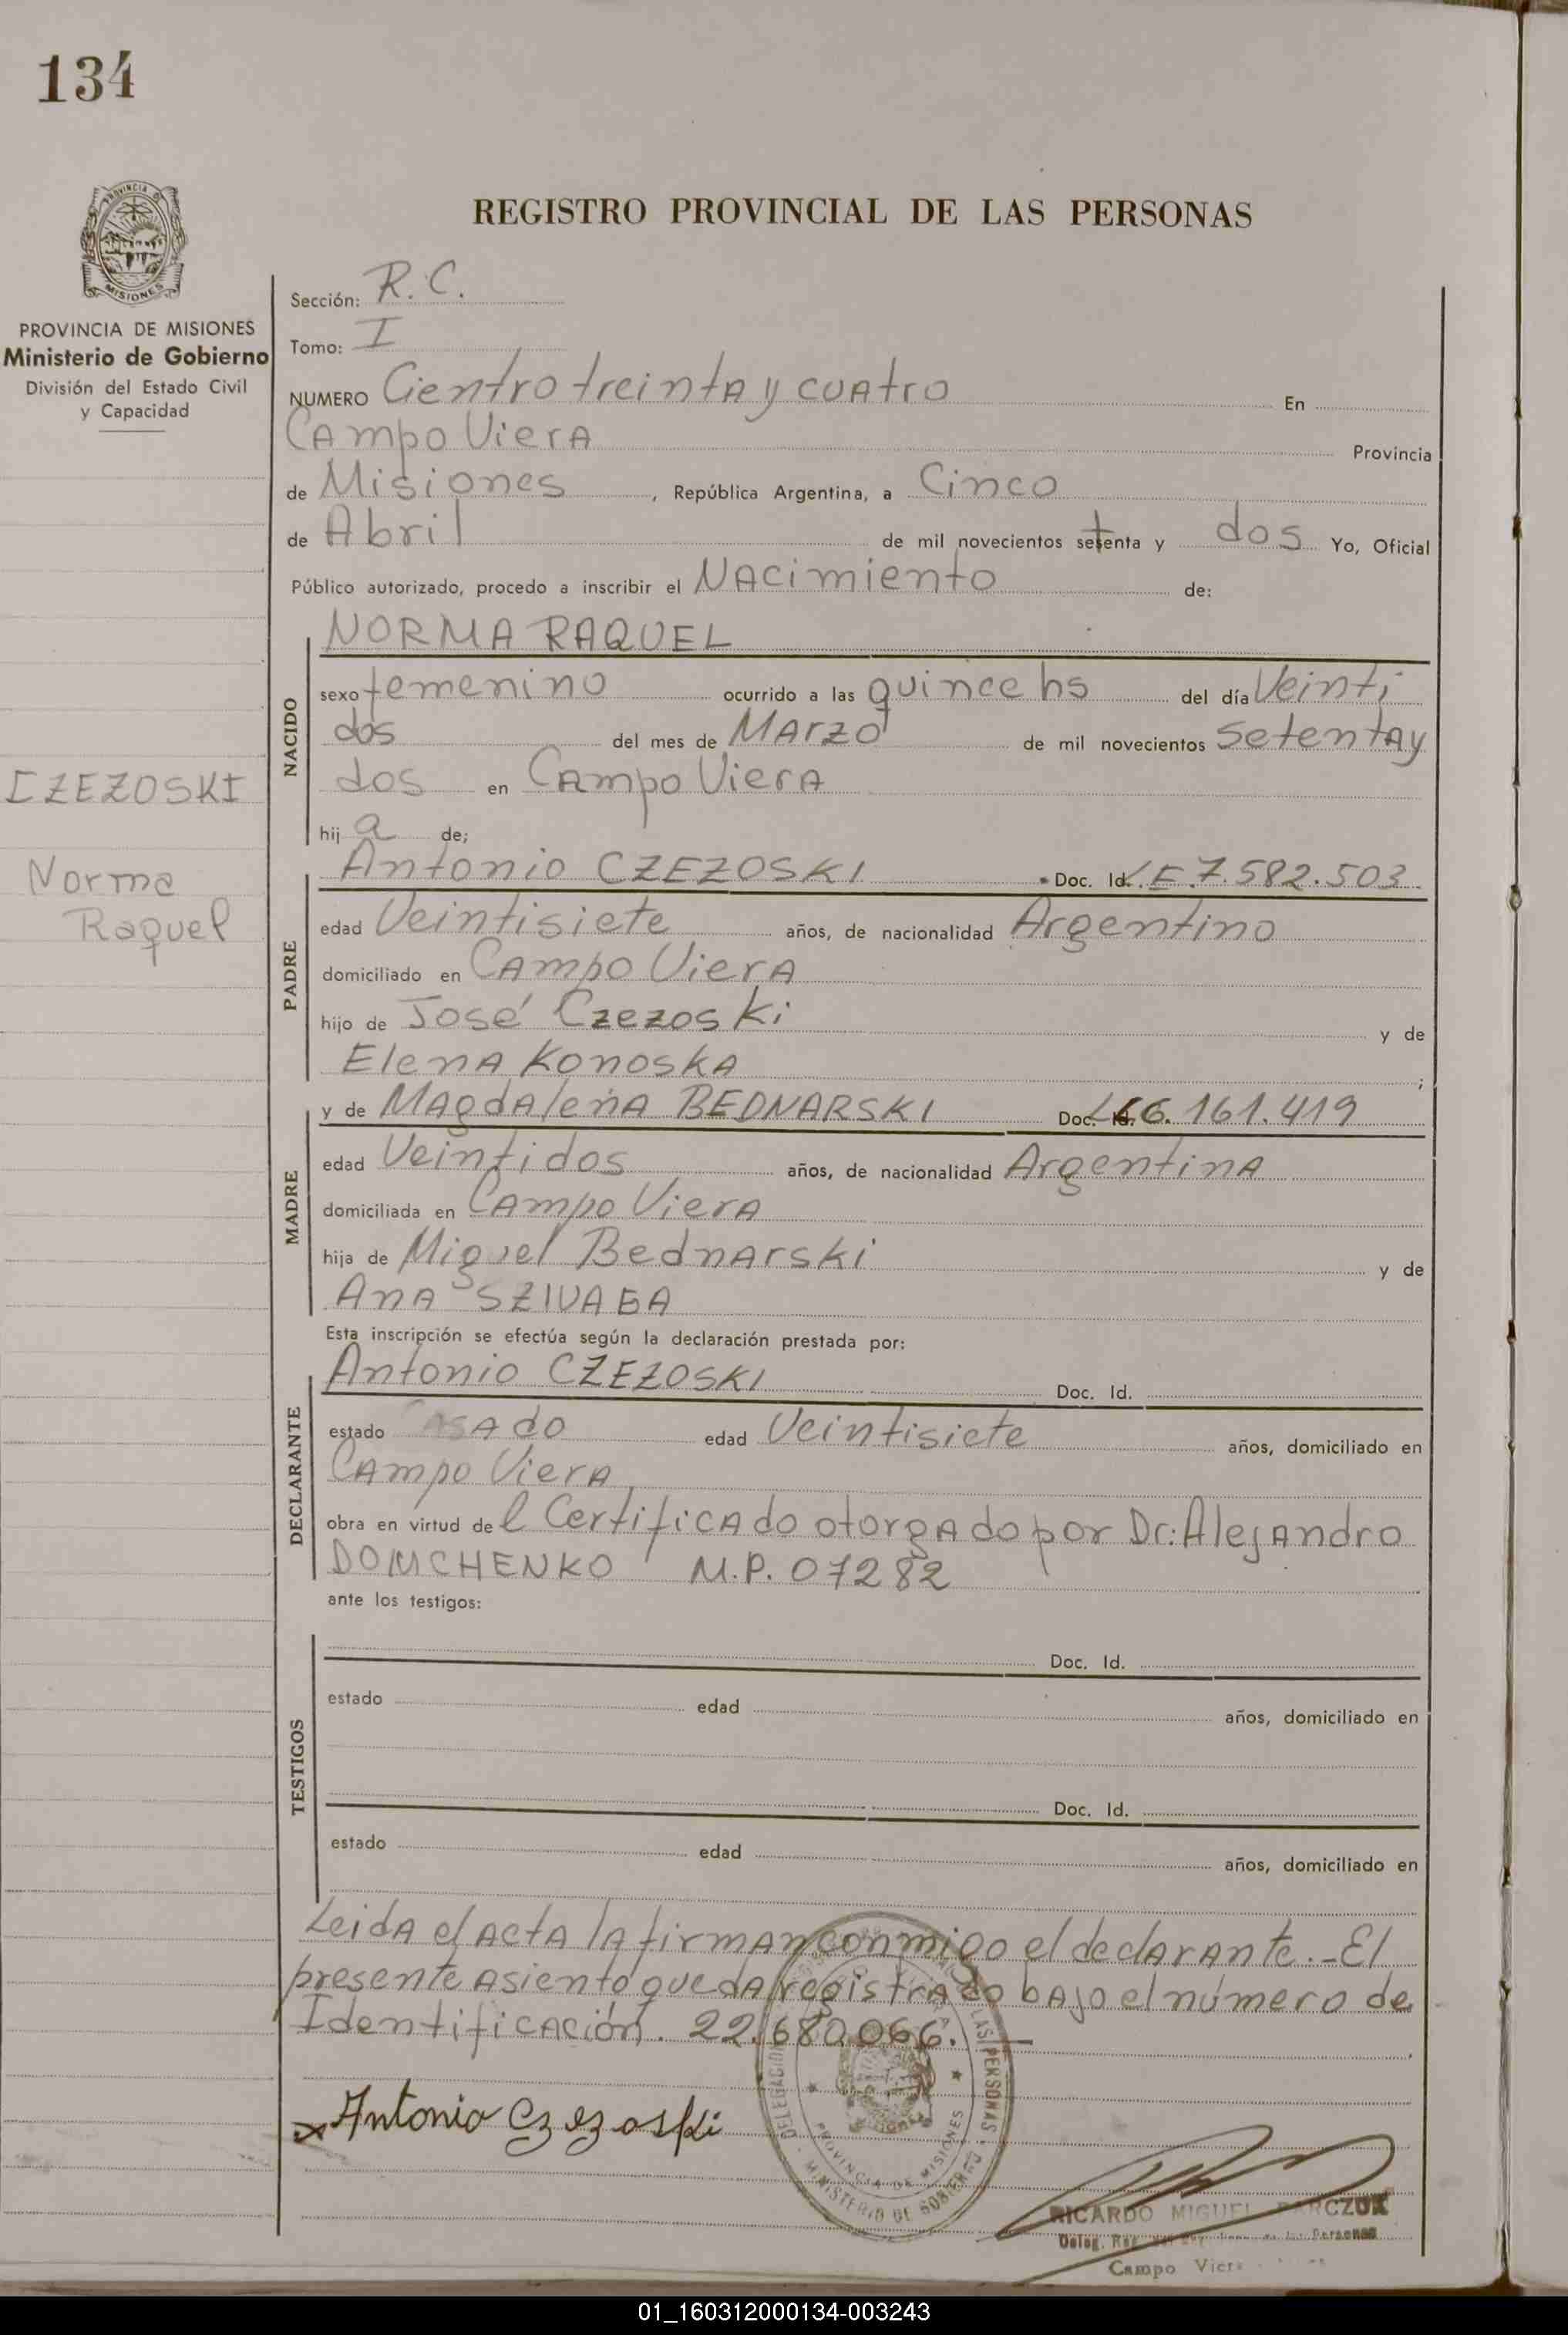 134
PROVINCIA DE MISIONES
Ministerio de Gobierno
División del Estado Civil
y Capacidad
CZEZOSKI
Norma
Raquel
REGISTRO PROVINCIAL DE LAS PERSONAS
Sección: R.C.
Tomo: I
NUMERO Cientro treinta y cuatro En
Campo Viera Provincia
de Misiones, República Argentina, a Cinco
de Abril de mil novecientos setenta y dos Yo, Oficial
Público autorizado, procedo a inscribir el Nacimiento de:
NORMA RAQUEL
NACIDO
sexo femenino ocurrido a las quince hs del día Veinti
dos del mes de Marzo de mil novecientos setenta y
dos en Campo Viera
hija de;
Antonio CZEZOSKI Doc. Id. L.E. 7.582.503
PADRE
edad Veintisiete años, de nacionalidad Argentino
domiciliado en Campo Viera
hijo de José Czezoski y de
Elena Konoska;
y de Magdalena BEDNARSKI Doc. 6.161.419
MADRE
edad Veintidos años, de nacionalidad Argentina
domiciliada en Campo Viera
hija de Miguel Bednarski y de
Ana
Esta inscripción se efectúa según la declaración prestada por:
Antonio CZEZOSKI Doc. Id.
DECLARANTE
estado Casado edad Veintisiete años, domiciliado en
Campo Viera
obra en virtud del Certificado otorgado por Dr: Alejandro
DOMCHENKO M.P. 07282
ante los testigos:
TESTIGOS
Doc. Id.
estado edad años, domiciliado en
Doc. Id.
estado edad años, domiciliado en
Leida el acta la firman conmigo el declarante.- El
presente asiento queda registrado bajo el número de
Identificación. 22.680.066.—
Antonio Czezoski
PROVINCIA DE MISIONES
MINISTERIO DE GOBIERNO
LAS PERSONAS
RICARDO MIGUEL
Campo Viera
01_160312000134-003243